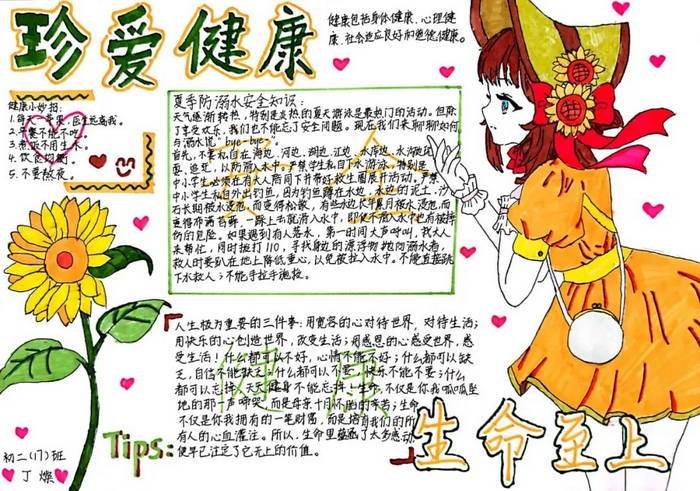 珍爱健康
健康包括身体健康、心理健
康、社会适应良好和道德健康。
健康小妙招:
1.每天一苹果,医生远离我。
2.早餐不能不吃
3.煮饭不用生水
4.饮食均衡
5.不要熬夜。
夏季防溺水安全知识:
天气逐渐转热,特别是炎热的夏天游泳是最热门的活动。但除
了享受欢乐,我们也不能忘了安全问题。现在我们来聊聊如何
与溺水说"bye-bye"
首先,不要私自在海边、河边、湖边、江边、水库边、水沟
边、追逐,以防滑入水中。严禁学生私自下水游泳。特别是
中小学生必须在有大人陪同下并带好救生圈展开活动。严禁
中小学生私自外出钓鱼,因为钓鱼蹲在水边,水边的泥土,沙
石长期被水浸泡,而变得松散,有些水边长年累月被水浸泡,而
重得布满苔藓,一踩上去就滑入水中,即使不滑入水中也有被摔
伤的危险。如果遇到有人落水,第一时间大声呼叫,找大人
来帮忙,同时拨打110,寻找身边的漂浮物抛向溺水者,
救人时要趴在地上降低重心,以免被拉入水中。不能直接跳
下水救人;不能手拉手施救。
人生极为重要的三件事:用宽容的心对待世界,对待生活;
用快乐的心创造世界,改变生活;用感恩的心感受世界,感
受生活!什么都可以不好,心情不能不好;什么都可以缺
乏,自信不能缺乏,什么都可以不要,快乐不能不要;什么
都可以忘掉,天天健身不能忘掉!生命,不仅是你我呱呱坠
地的那一声啼哭,而是母亲十月怀胎的辛苦;生命
不仅是你我拥有的一笔财富,而是培育我们的所
有人的心血灌注。所以,生命里蕴涵了太多感动
便早已注定了它无上的价值。
健康
Tips:
生命至上
初二(17)班
丁燦